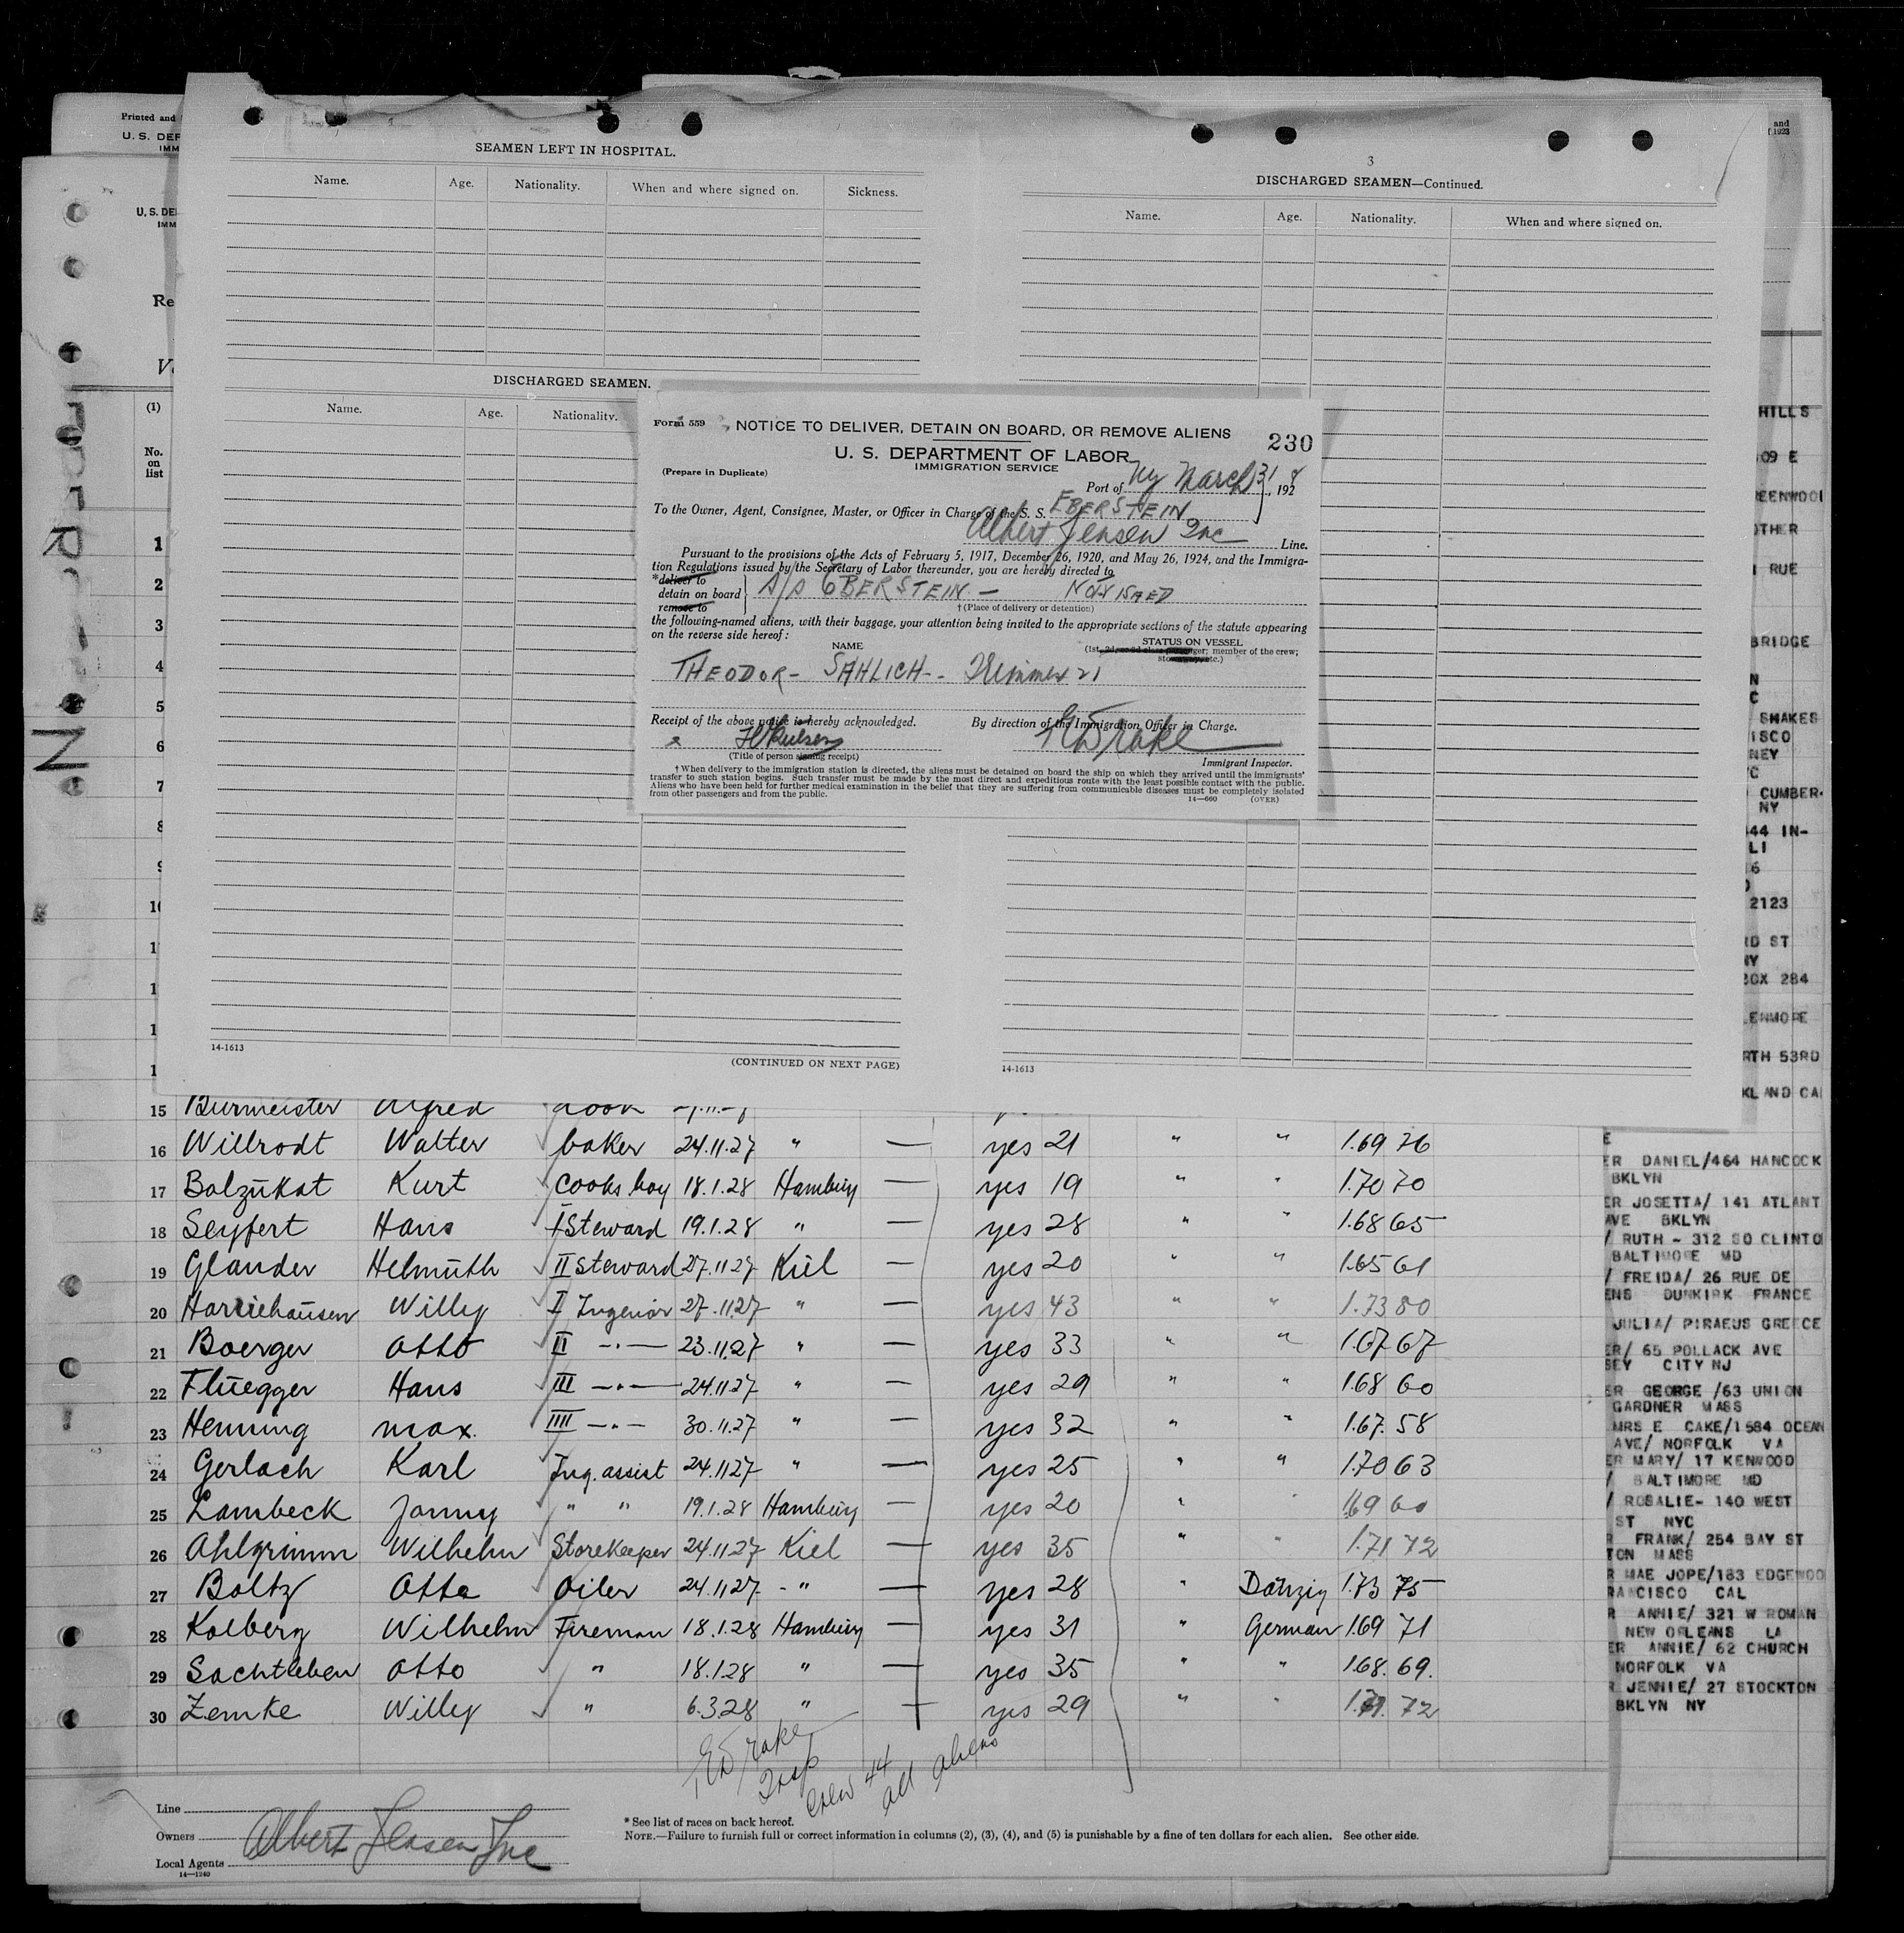 Printed and
U. S. DEP
IMM
U. S. DE
IMM
Re
(1)
No.
on
list
1
2
3
4
5
6
7
8
9
10
1
1
1
1
and
1923
SEAMEN LEFT IN HOSPITAL.
Name. Age. Nationality. When and where signed on. Sickness.
DISCHARGED SEAMEN.
Name. Age. Nationality.
14-1613
(CONTINUED ON NEXT PAGE)
3
DISCHARGED SEAMEN—Continued.
Name. Age. Nationality. When and where signed on.
14-1613
Form 559
NOTICE TO DELIVER, DETAIN ON BOARD, OR REMOVE ALIENS
230
U. S. DEPARTMENT OF LABOR
IMMIGRATION SERVICE
(Prepare in Duplicate)
Port of Ny March 31, 1928
To the Owner, Agent, Consignee, Master, or Officer in Charge of the S. S. EBERSTEIN
Albert Jensen Inc Line.
Pursuant to the provisions of the Acts of February 5, 1917, December 26, 1920, and May 26, 1924, and the Immigra-
tion Regulations issued by the Secretary of Labor thereunder, you are hereby directed to
*deliver to
detain on board
remove to
S/S EBERSTEIN —
†(Place of delivery or detention)
the following-named aliens, with their baggage, your attention being invited to the appropriate sections of the statute appearing
on the reverse side hereof:
NAME
STATUS ON VESSEL
(1st, 2d, or 3d class passenger; member of the crew;
stowaway, etc.)
THEODOR - SAHLICH - Trimmer 21
Receipt of the above notice is hereby acknowledged.
By direction of the Immigration Officer in Charge.
x
(Title of person signing receipt)
E Drake
Immigrant Inspector.
† When delivery to the immigration station is directed, the aliens must be detained on board the ship on which they arrived until the immigrants'
transfer to such station begins. Such transfer must be made by the most direct and expeditious route with the least possible contact with the public.
Aliens who have been held for further medical examination in the belief that they are suffering from communicable diseases must be completely isolated
from other passengers and from the public.
14—660 (OVER)
15 Burmeister Alfred
16 Willrodt Walter baker 24.11.27 " — yes 21 " " 1.69 76
17 Balzukat Kurt Cooks boy 18.1.28 Hamburg — yes 19 " " 1.70 70
18 Seyfert Hans I Steward 19.1.28 " — yes 28 " " 1.68 65
19 Glander Helmuth II Steward 27.11.27 Kiel — yes 20 " " 1.65 61
20 Harriehausen Willy I Ingenior 27.11.27 " — yes 43 " " 1.73 80
21 Boerger Otto II —"— 23.11.27 " — yes 33 " " 1.67 67
22 Fluegger Hans III —"— 24.11.27 " — yes 29 " " 1.68 60
23 Henning max. IIII —"— 30.11.27 " — yes 32 " " 1.67. 58
24 Gerlach Karl Ing. assist 24.11.27 " — yes 25 " " 1.70 63
25 Lambeck Jonny " " 19.1.28 Hamburg — yes 20 " " 1.69 60
26 Ahlgrimm Wilhelm Storekeeper 24.11.27 Kiel — yes 35 " " 1.71 72
27 Boltz Otto Oiler 24.11.27 - " — yes 28 " Danzig 1.73 75
28 Kolberg Wilhelm Fireman 18.1.28 Hamburg — yes 31 " German 1.69 71
29 Sachtleben Otto " 18.1.28 " — yes 35 " " 1.68. 69.
30 Zemke Willy " 6.3.28 " — yes 29 " " 72
E Drake
Insp
Crew 44
all aliens
Line
Owners
Local Agents
Albert Jensen Inc
14—1240
* See list of races on back hereof.
NOTE.—Failure to furnish full or correct information in columns (2), (3), (4), and (5) is punishable by a fine of ten dollars for each alien. See other side.
HILLS
09 E
REENWOOD
OTHER
RUE
BRIDGE
N
C
SHAKES
ISCO
NEY
C
CUMBER-
NY
44 IN-
LI
6
2123
RD ST
NY
BOX 284
LENMORE
RTH 53RD
KLAND CA
E
ER DANIEL/464 HANCOCK
BKLYN
ER JOSETTA/ 141 ATLANT
AVE BKLYN
/ RUTH - 312 SO CLINTO
BALTIMORE MD
/ FREIDA/ 26 RUE DE
ENS DUNKIRK FRANCE
JULIA/ PIRAEUS GREECE
ER/ 65 POLLACK AVE
SEY CITY NJ
ER GEORGE /63 UNION
GARDNER MASS
MRS E CAKE/1584 OCEAN
AVE/ NORFOLK VA
ER MARY/ 17 KENWOOD
/ BALTIMORE MD
/ ROSALIE- 140 WEST
ST NYC
R FRANK/ 254 BAY ST
TON MASS
R MAE JOPE/183 EDGEWOO
RANCISCO CAL
R ANNIE/ 321 W ROMAN
NEW ORLEANS LA
ER ANNIE/ 62 CHURCH
NORFOLK VA
R JENNIE/ 27 STOCKTON
BKLYN NY